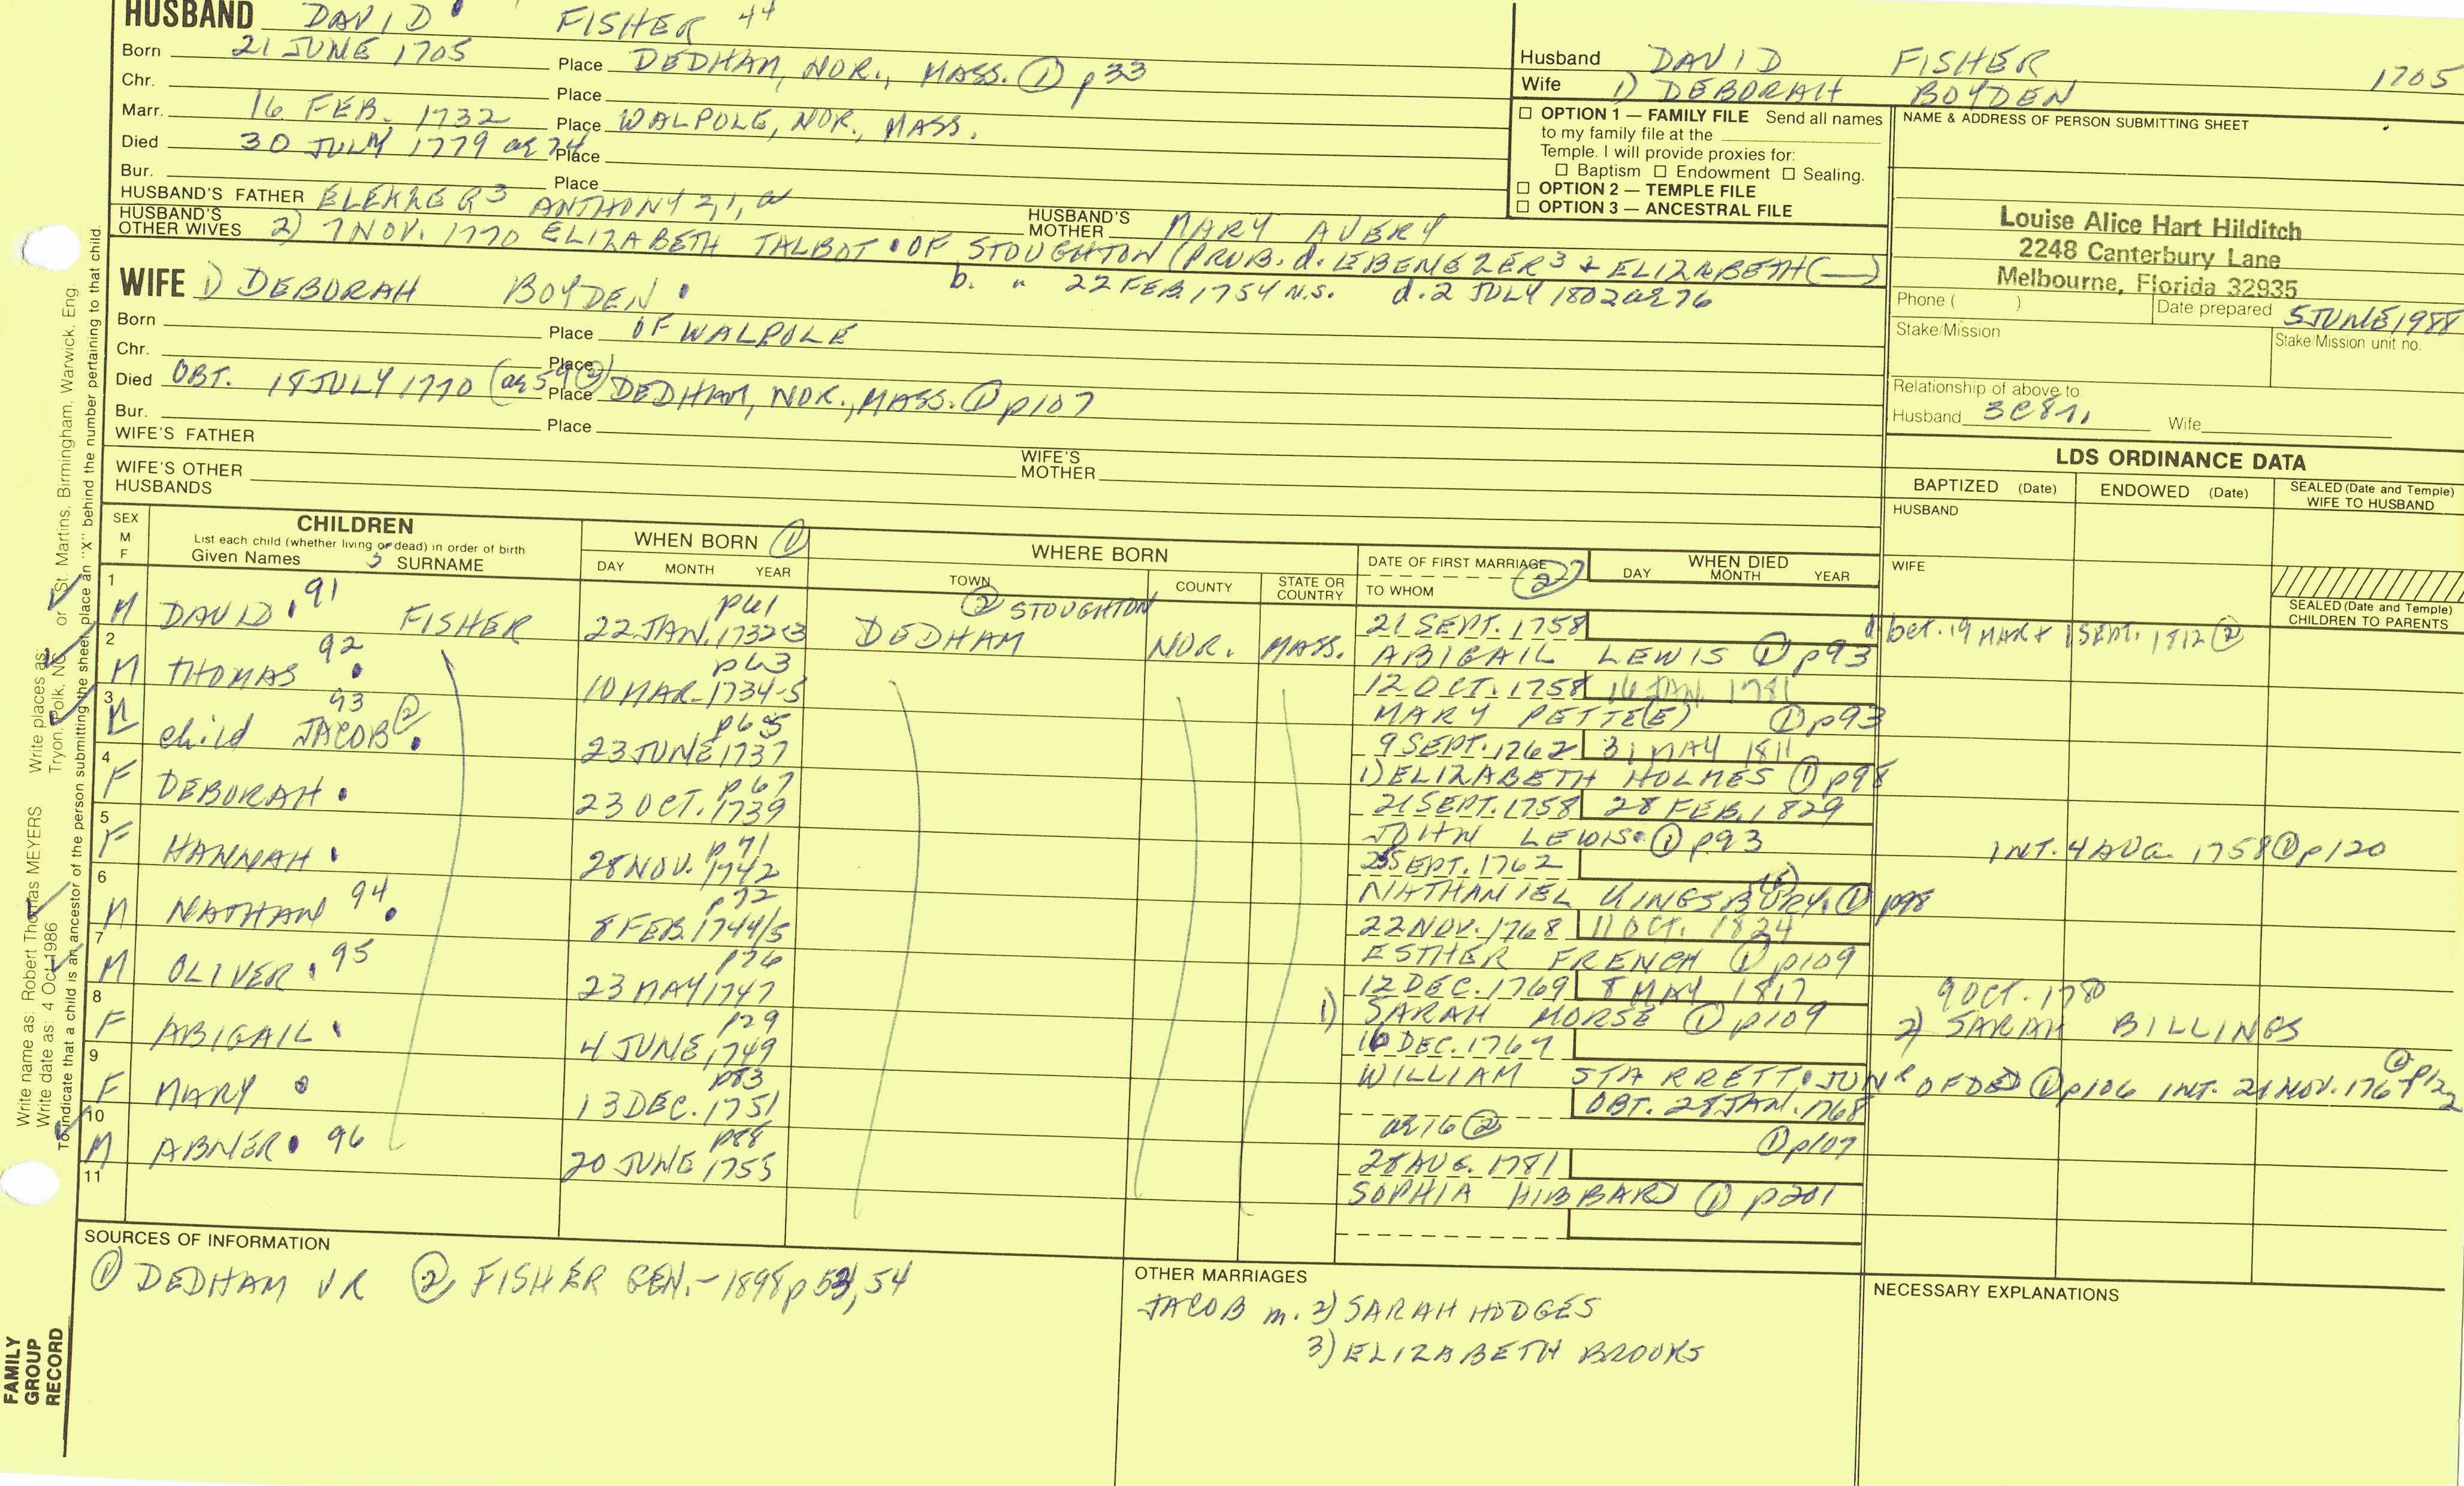 HUSBAND DAVID FISHER 44
Born 21 JUNE 1705 Place DEDHAM, NOR., MASS. ① p33
Chr. Place
Marr. 16 FEB. 1732 Place WALPOLE, NOR., MASS.
Died 30 JULY 1779 ae 74 Place
Bur. Place
HUSBAND'S FATHER ELEAZER3 ANTHONY 2,1, a HUSBAND'S MOTHER MARY AVERY
HUSBAND'S OTHER WIVES 2) 7 NOV. 1770 ELIZABETH TALBOT OF STOUGHTON (PROB. d. EBENEZER3 & ELIZABETH (—)
b. " 22 FEB. 1754 N.S. d. 2 JULY 1802 ae 76
WIFE 1) DEBORAH BOYDEN
Born Place OF WALPOLE
Chr. Place
Died OBT. 18 JULY 1770 (ae 59 ②) Place DEDHAM, NOR., MASS. ① p107
Bur. Place
WIFE'S FATHER WIFE'S MOTHER
WIFE'S OTHER HUSBANDS
Husband DAVID FISHER 1705
Wife 1) DEBORAH BOYDEN
☐ OPTION 1 — FAMILY FILE Send all names
to my family file at the
Temple. I will provide proxies for:
☐ Baptism ☐ Endowment ☐ Sealing.
☐ OPTION 2 — TEMPLE FILE
☐ OPTION 3 — ANCESTRAL FILE
NAME & ADDRESS OF PERSON SUBMITTING SHEET
Louise Alice Hart Hilditch
2248 Canterbury Lane
Melbourne, Florida 32935
Phone ( ) Date prepared 5 JUNE 1988
Stake/Mission Stake/Mission unit no.
Relationship of above to
Husband 3C8r, Wife
LDS ORDINANCE DATA
BAPTIZED (Date) ENDOWED (Date) SEALED (Date and Temple) WIFE TO HUSBAND
HUSBAND
WIFE
SEALED (Date and Temple) CHILDREN TO PARENTS
SEX M F
CHILDREN
List each child (whether living or dead) in order of birth
Given Names SURNAME
WHEN BORN ①
DAY MONTH YEAR
WHERE BORN
TOWN COUNTY STATE OR COUNTRY
DATE OF FIRST MARRIAGE ②
TO WHOM
WHEN DIED
DAY MONTH YEAR
1 M DAVID 91 FISHER p61 22 JAN. 1732-3 ② STOUGHTON DEDHAM NOR. MASS. 21 SEPT. 1758 ABIGAIL LEWIS ① p93 bet. 19 MAR & 1 SEPT. 1812 ②
2 M THOMAS 92 p63 10 MAR. 1734-5 12 OCT. 1758 16 JAN. 1781 MARY PETTE(E) ① p93
3 M child JACOB ② 93 p65 23 JUNE 1737 9 SEPT. 1762 31 MAY 1811 1) ELIZABETH HOLMES ① p98
4 F DEBORAH p67 23 OCT. 1739 21 SEPT. 1758 28 FEB. 1829 JOHN LEWIS ① p93 INT. 4 AUG. 1758 ① p120
5 F HANNAH p71 28 NOV. 1742 SEPT. 1762 NATHANIEL KINGSBURY ① p98
6 M NATHAN 94 p72 8 FEB. 1744/5 22 NOV. 1768 11 OCT. 1824 ESTHER FRENCH ① p109
7 M OLIVER 95 p76 23 MAY 1747 12 DEC. 1769 8 MAY 1817 1) SARAH MORSE ① p109 9 OCT. 1780 2) SARAH BILLINGS
8 F ABIGAIL p79 4 JUNE 1749 10 DEC. 1767 WILLIAM STARRETT JUNR OF DED ① p106 INT. 21 NOV. 1767 ① p122
9 F MARY p83 13 DEC. 1751 OBT. 28 JAN. 1768 ae 16 ② ① p107
10 M ABNER 96 p88 20 JUNE 1755 28 AUG. 1781 SOPHIA HIBBARD ① p201
11
SOURCES OF INFORMATION
① DEDHAM VR ② FISHER GEN. - 1898 p 53, 54
OTHER MARRIAGES
JACOB m. 2) SARAH HODGES
3) ELIZABETH BROOKS
NECESSARY EXPLANATIONS
Write name as: Robert Thomas MEYERS Write places as: Tryon, Polk, NC or St. Martins, Birmingham, Warwick, Eng
Write date as: 4 Oct 1986
To indicate that a child is an ancestor of the person submitting the sheet, place an "X" behind the number pertaining to that child.
FAMILY
GROUP
RECORD